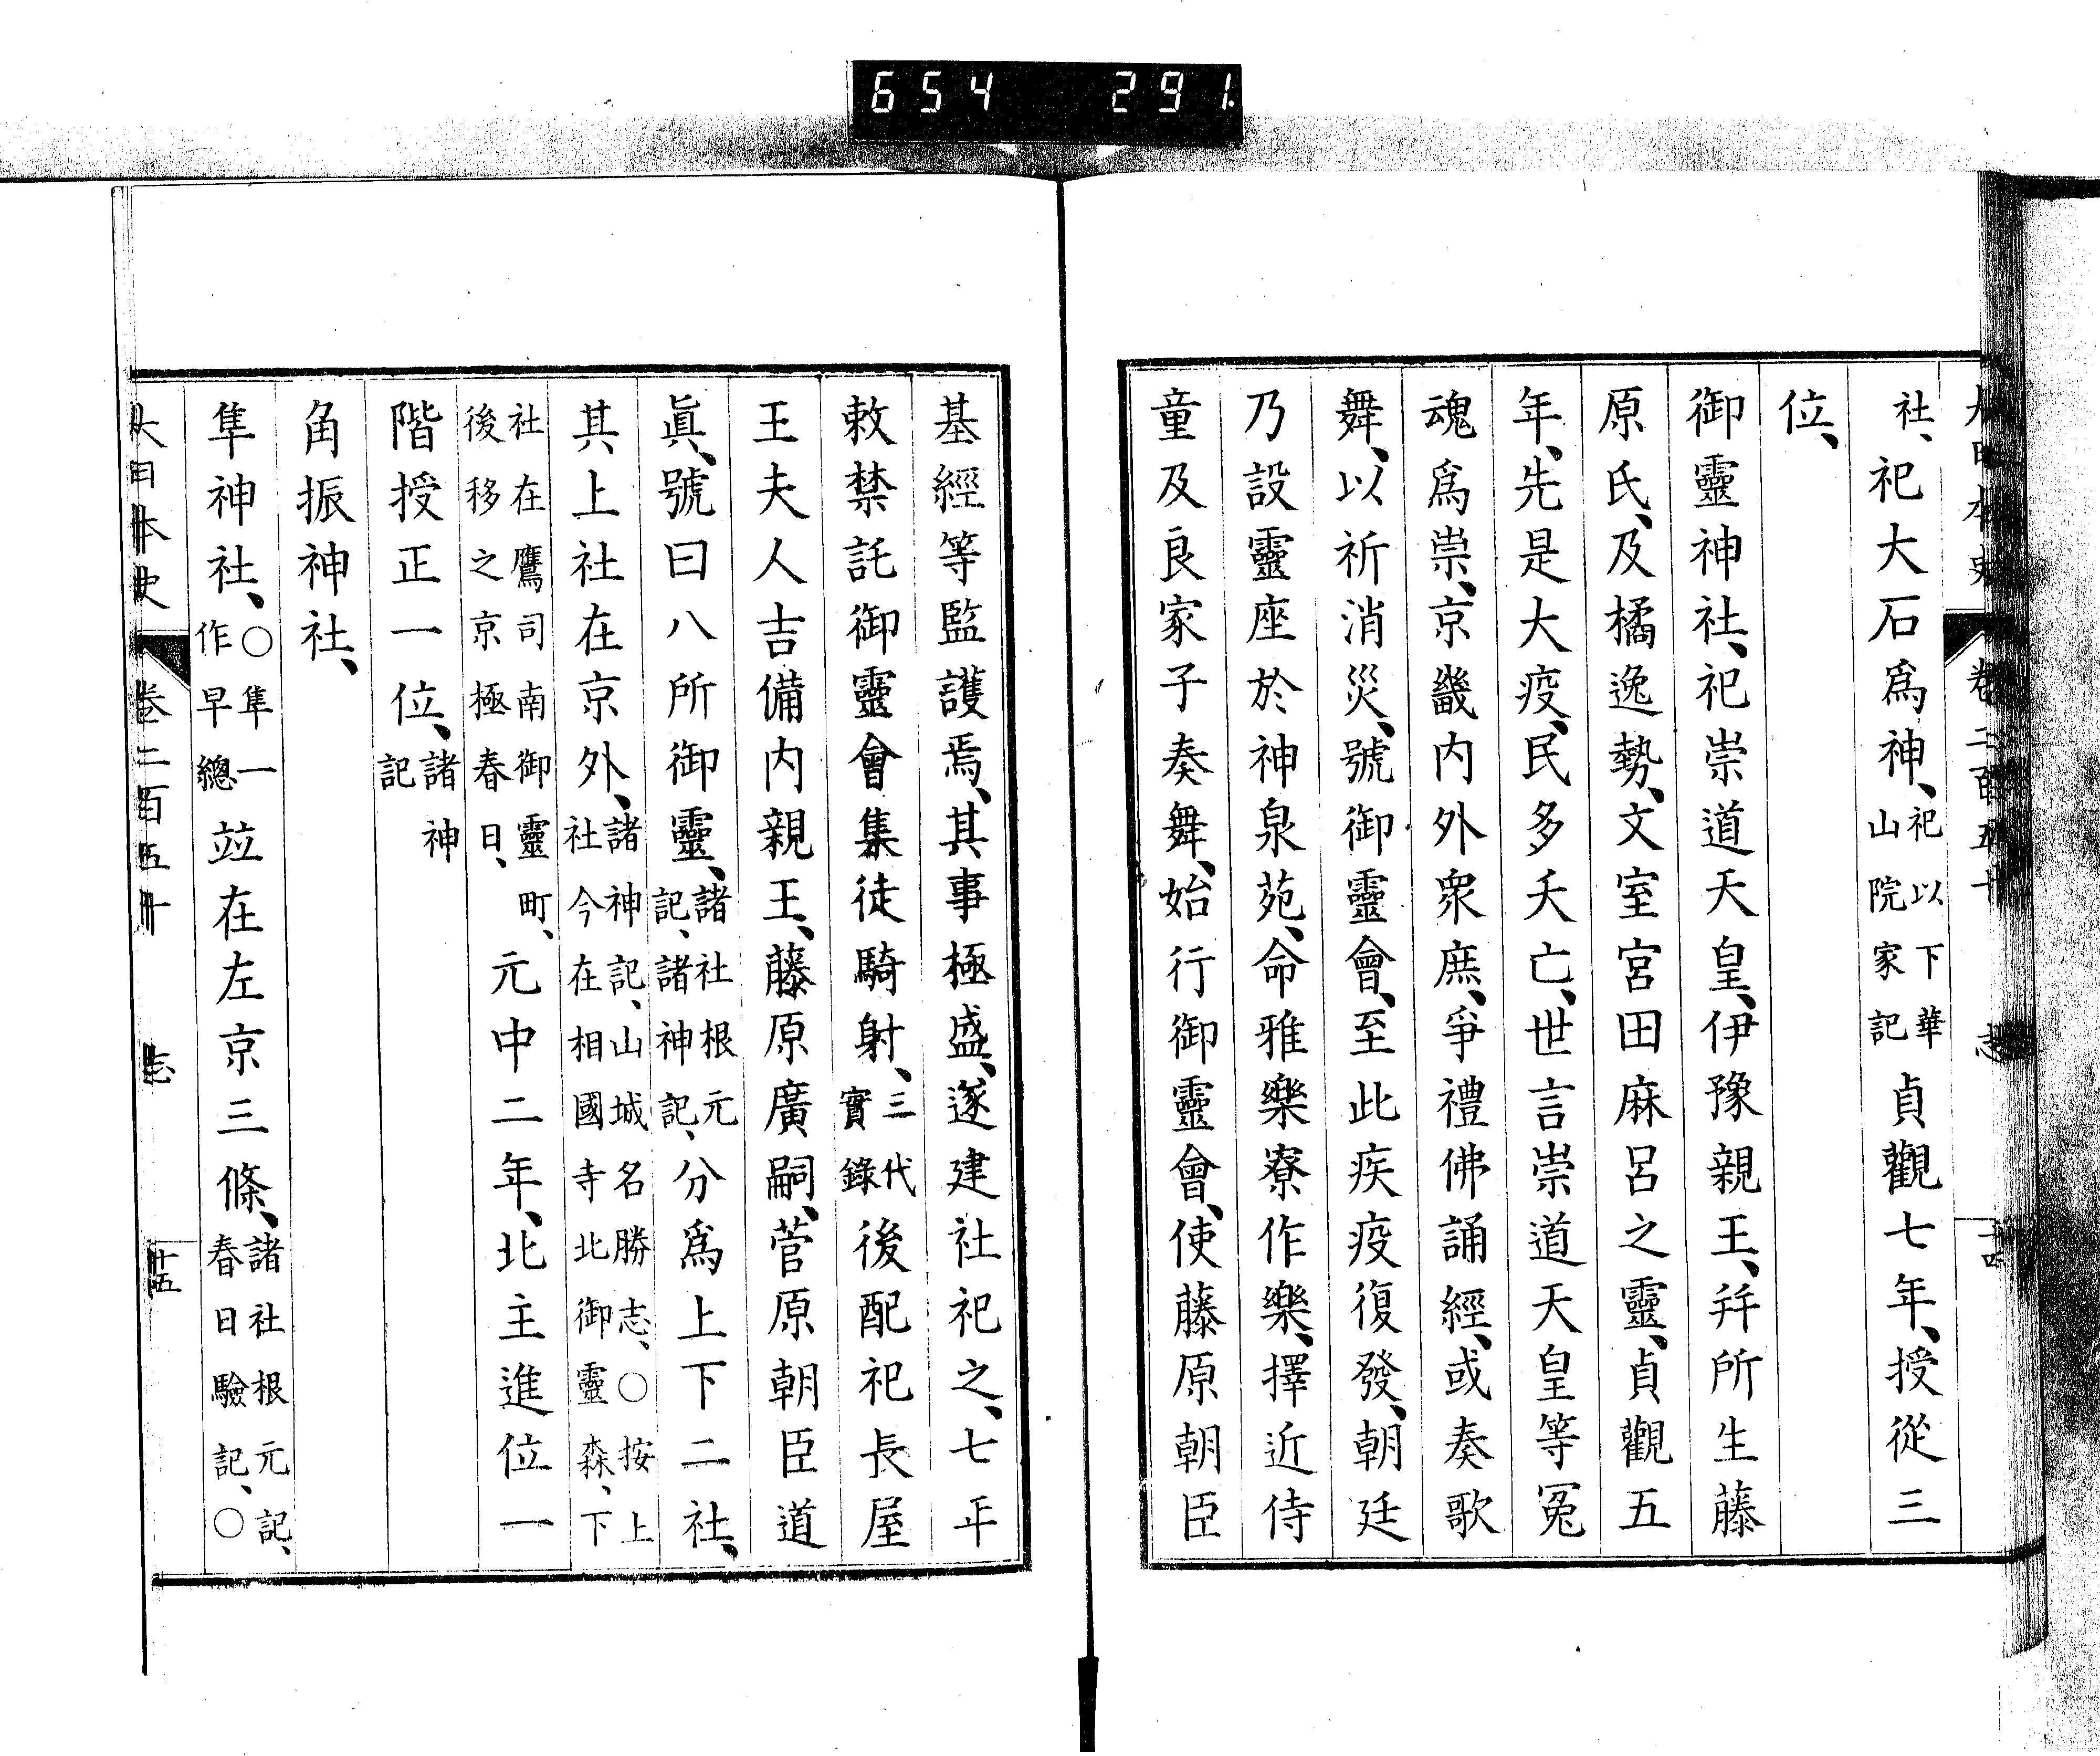 654 291.
大日本史 卷二百五十 志 十四
社、祀大石爲神、祀以下華山院家記貞觀七年、授從三
位、
御靈神社、祀崇道天皇、伊豫親王、幷所生藤
原氏、及橘逸勢、文室宮田麻呂之靈、貞觀五
年、先是大疫、民多夭亡、世言崇道天皇等冤
魂爲崇、京畿内外衆庶、爭禮佛誦經、或奏歌
舞、以祈消災、號御靈會、至此疾疫復發、朝廷
乃設靈座於神泉苑、命雅樂寮作樂、擇近侍
童及良家子奏舞、始行御靈會、使藤原朝臣
基經等監護焉、其事極盛、遂建社祀之、七年
敕禁託御靈會集徒騎射、三代實錄後配祀長屋
王夫人吉備内親王、藤原廣嗣、菅原朝臣道
眞、號曰八所御靈、諸社根元記、諸神記、分爲上下二社、
其上社在京外、諸神記、山城名勝志、○按上社今在相國寺北御靈森、下
社在鷹司南御靈町、後移之京極春日、元中二年、北主進位一
階授正一位、諸神記
角振神社、
隼神社、○隼一作早總竝在左京三條、諸社根元記、春日驗記、○
大日本史 卷二百五十 志 十五